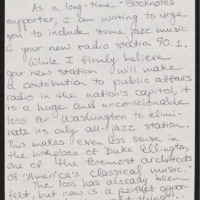 As a long-time - Booknotes
supporter, I am writing to urge
you to include some jazz music
in your new radio station 90.1.
While I firmly believe
your new station will make
a contribution to public affairs
radio in the nation's capitol, it
is a huge and unconscionable
loss for Washington to elimi-
nate its only all-jazz station.
This makes even less sense in
the birthplace of Duke Ellington,
one of the foremost architects
of "America's classical music."
The loss has already been
felt, but now is a perfect oppor-